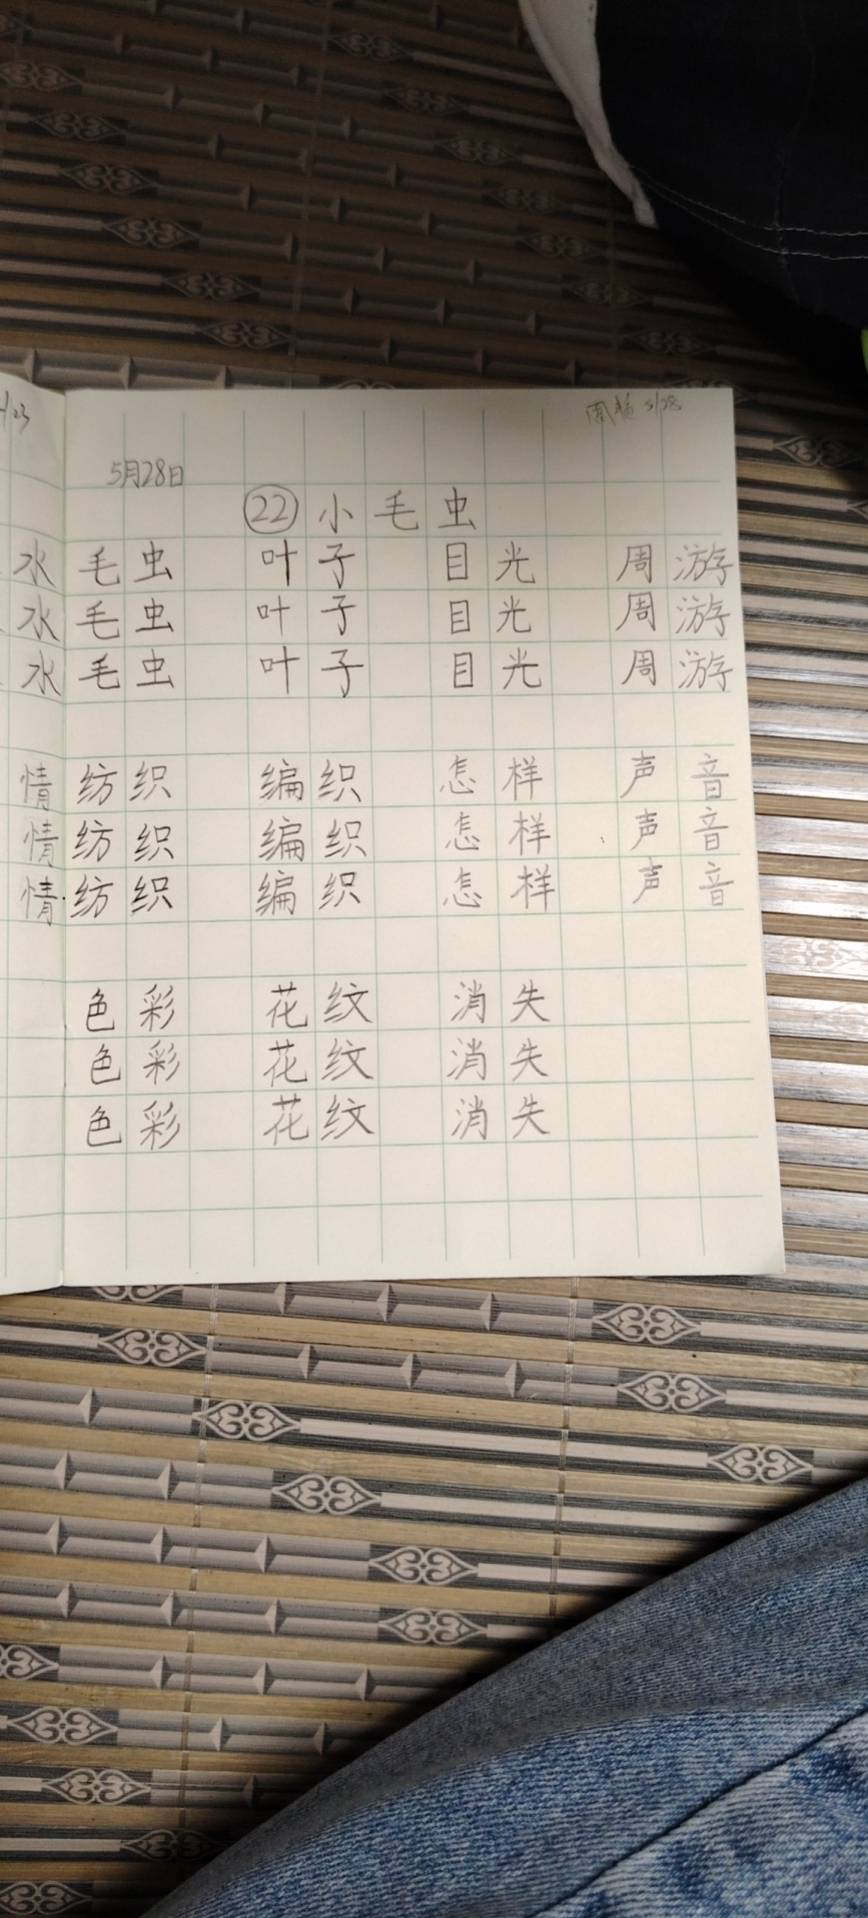 5月28日
22 小毛虫
水 毛虫 叶子 目光 周游
水 毛虫 叶子 目光 周游
水 毛虫 叶子 目光 周游
情 纺织 编织 怎样 声音
情 纺织 编织 怎样 声音
情 纺织 编织 怎样 声音
色彩 花纹 消失
色彩 花纹 消失
色彩 花纹 消失